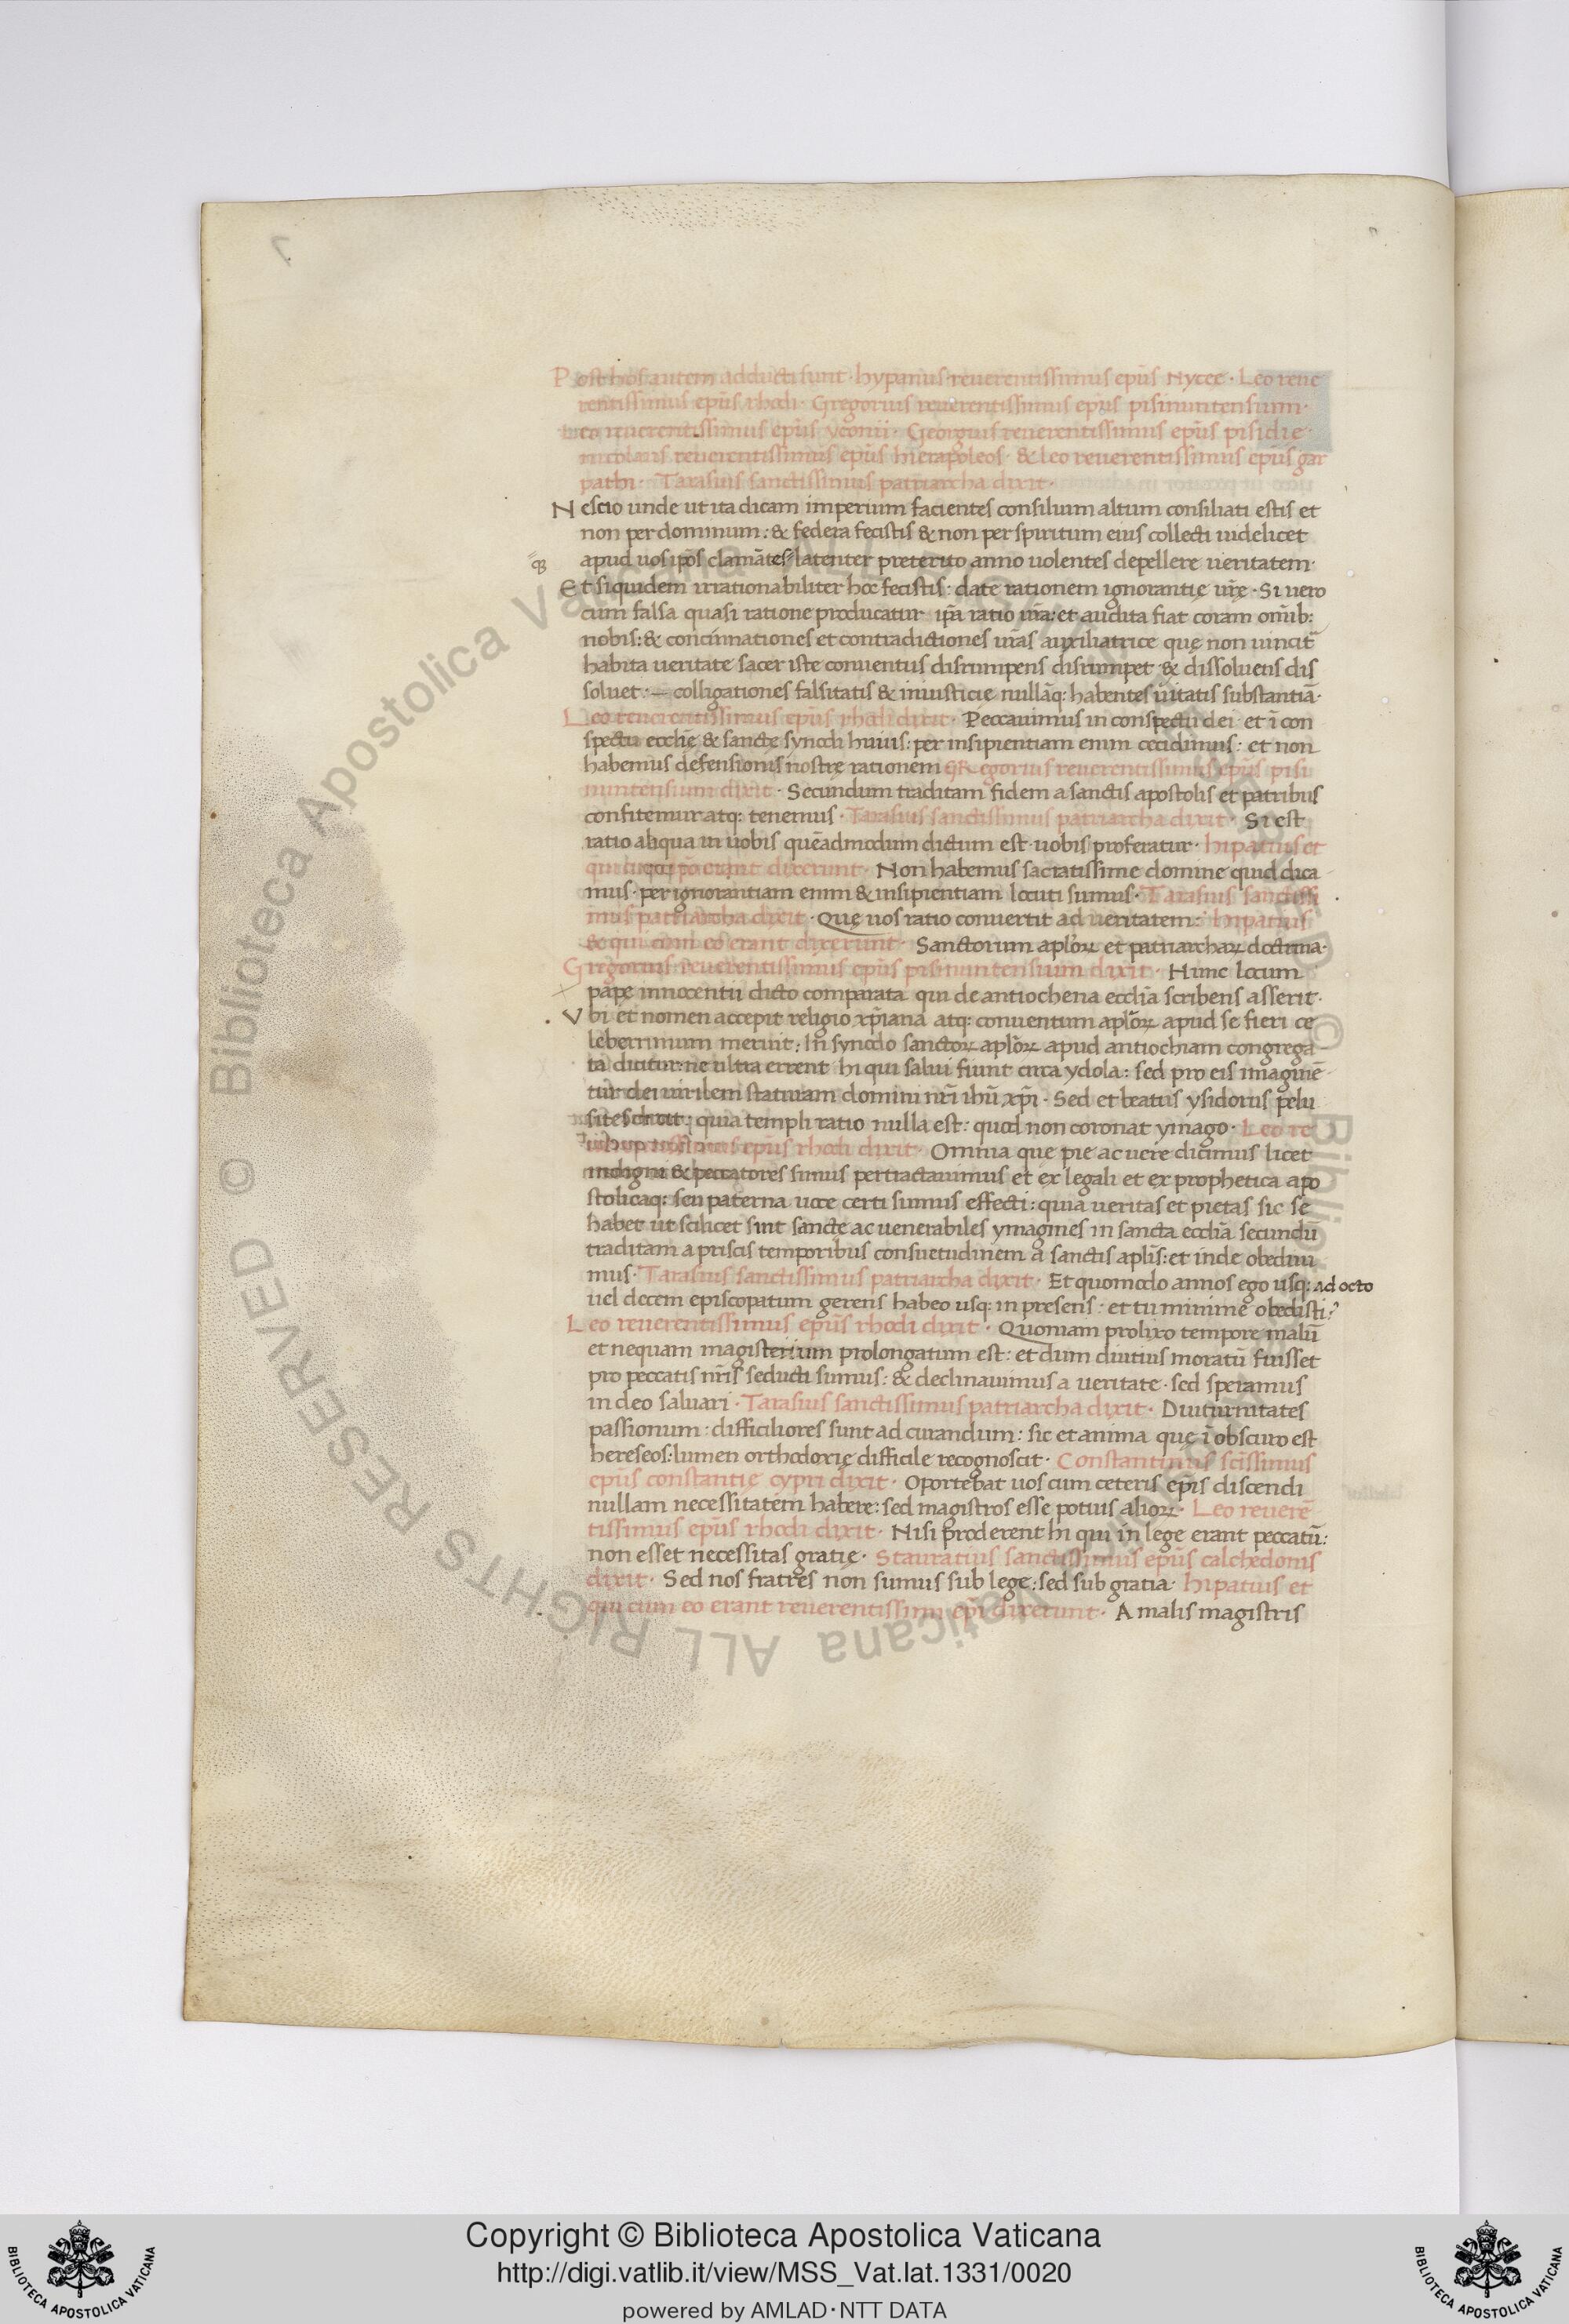 Post hos autem adducti sunt · hypatius reuerentissimus ep̄s Nycee · Leo reue
rentissimus ep̄s rhodi · Gregorius reuerentissimus ep̄s pisinuntensium ·
Leo reuerentissimus ep̄s yconii · Georgius reuerentissimus ep̄s pisidię ·
nicolaus reuerentissimus ep̄s hierapoleos · & leo reuerentissimus ep̄s gar
pathi · Tarasius sanctissimus patriarcha dixit ·
Nescio unde ut ita dicam imperium facientes consilium altum consiliati estis et
non per dominum : & federa fecistis & non per spiritum eius collecti uidelicet
apud uos ip̄os clamātes latenter preterito anno uolentes depellere ueritatem ·
Et siquidem irrationabiliter hoc fecistis : date rationem ignorantię ur̄ę · Si uero
cum falsa quasi ratione producatur ip̄a ratio ur̄a : et audita fiat coram om̄ib :
nobis : & concinnationes et contradictiones ur̄as auxiliatrice quę non uincit
habita ueritate sacer iste conuentus disrumpens disrumpet & dissoluens dis
soluet · — colligationes falsitatis & iniusticię nullāq : habentes ūitatis substantiā ·
Leo reuerentissimus ep̄s rhodi dixit · Peccauimus in conspectu dei et ī con
spectu eccłię & sanctę synodi huius : per insipientiam enim cecidimus : et non
habemus defensionis nostrę rationem Gregorius reuerentissimus ep̄s pisi
nuntensium dixit · Secundum traditam fidem a sanctis apostolis et patribus
confitemur atq : tenemus · Tarasius sanctissimus patriarcha dixit · Si est
ratio aliqua in uobis quēadmodum dictum est uobis proferatur · hipatius et
qui cum eo erant dixerunt · Non habemus sacratissime domine quid dica
mus · per ignorantiam enim & insipientiam locuti sumus · Tarasius sanctissi
mus patriarcha dixit · Quę uos ratio conuertit ad ueritatem : hipatius
& qui cum eo erant dixerunt · Sanctorum apl̄oꝝ et patriarchaꝝ doctrina ·
Gregorius reuerentissimus ep̄s pisinuntensium dixit · Hunc locum
papę innocentii dicto comparata qui de antiochena ecclīa scribens asserit ·
Vbi et nomen accepit religio xp̄iana atq : conuentum apl̄oꝝ apud se fieri ce
leberrimum meruit : In synodo sanctoꝝ apl̄oꝝ apud antiochiam congrega
ta dicitur : ne ultra errent hi qui salui fiunt circa ydola : sed pro eis imaginē
tur dei uirilem staturam domini nr̄i ihū xp̄i · Sed et beatus ysidorus pelu
quia templi ratio nulla est : quod non coronat ymago · Leo re
ep̄s rhodi dixit · Omnia que pie ac uere dicimus licet
indigni & peccatores simus pertractauimus et ex legali et ex prophetica apo
stolicaq : seu paterna uoce certi sumus effecti : quia ueritas et pietas sic se
habet ut scilicet sint sanctę ac uenerabiles ymagines in sancta ecclīa secundū
traditam a priscis temporibus consuetudinem a sanctis apl̄is : et inde obedim
mus · Tarasius sanctissimus patriarcha dixit · Et quomodo annos ego usq : ad octo
uel decem episcopatum gerens habeo usq : in presens : et tu minime obedisti ?
Leo reuerentissimus ep̄s rhodi dixit · Quoniam prolixo tempore malū
et nequam magisterium prolongatum est : et dum diutius moratū fuisset
pro peccatis nr̄is seducti sumus : & declinauimus a ueritate · sed speramus
in deo saluari · Tarasius sanctissimus patriarcha dixit · Diuturnitates
passionum : difficiliores sunt ad curandum : sic et anima quę ī obscuro est
hereseos : lumen orthodoxię difficile recognoscit · Constantinus scīssimus
ep̄s constantię cypri dixit · Oportebat uos cum ceteris epis discendi
nullam necessitatem habere : sed magistros esse potius alioꝝ · Leo reuerē
tissimus ep̄s rhodi dixit · Nisi proderent hi qui in lege erant peccatū :
non esset necessitas gratię · Stauratius sanctissimus ep̄s calchedonis
dixit · Sed nos fratres non sumus sub lege : sed sub gratia · hipatius et
qui cum eo erant reuerentissimi ep̄i dixerunt · A malis magistris
Copyright © Biblioteca Apostolica Vaticana
http://digi.vatlib.it/view/MSS_Vat.lat.1331/0020
powered by AMLAD · NTT DATA
BIBLIOTECA APOSTOLICA VATICANA
BIBLIOTECA APOSTOLICA VATICANA